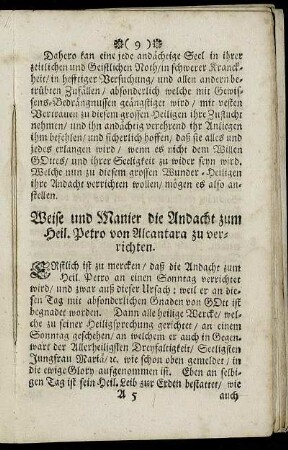 ( 9 )
Dahero kan eine jede andächtige Seel in ihrer
zeitlichen und Geistlichen Noth/ in schwerer Kranck-
heit/ in hefftiger Versuchung/ und allen andern be-
trübten Zufällen/ absonderlich welche mit Gewis-
sens-Bedrängnussen geängstiget wird/ mit vesten
Vertrauen zu diesem grossen-Heiligen ihre Zuflucht
nehmen/ und ihn andächtig verehrend ihr Anliegen
ihm befehlen/ und sicherlich hoffen/ daß sie alles und
jedes erlangen wird/ wenn es nicht dem Willen
GOttes/ und ihrer Seeligkeit zu wider seyn wird.
Welche nun zu diesem grossen Wunder-Heiligen
ihre Andacht verrichten wollen/ mögen es also an-
stellen.
Weise und Manier die Andacht zum
Heil. Petro von Alcantara zu ver-
richten.
ERstlich ist zu mercken/ daß die Andacht zum
Heil. Petro an einen Sonntag verrichtet
wird/ und zwar auß dieser Ursach: weil er an die-
sen Tag mit absonderlichen Gnaden von GOtt ist
begnadet worden. Dann alle heilige Wercke/ wel-
che zu seiner Heiligsprechung gerichtet/ an einem
Sonntag geschehen/ an welchem er auch in Gegen-
wart der Allerheiligsten Dreyfaltigkeit/ Seeligsten
Jungfrau Mariä/ ꝛc. wie schon oben gemeldet/ in
die ewige Glory aufgenommen ist. Eben an selbi-
gen Tag ist sein Heil. Leib zur Erden bestattet/ wie
A 5 auch